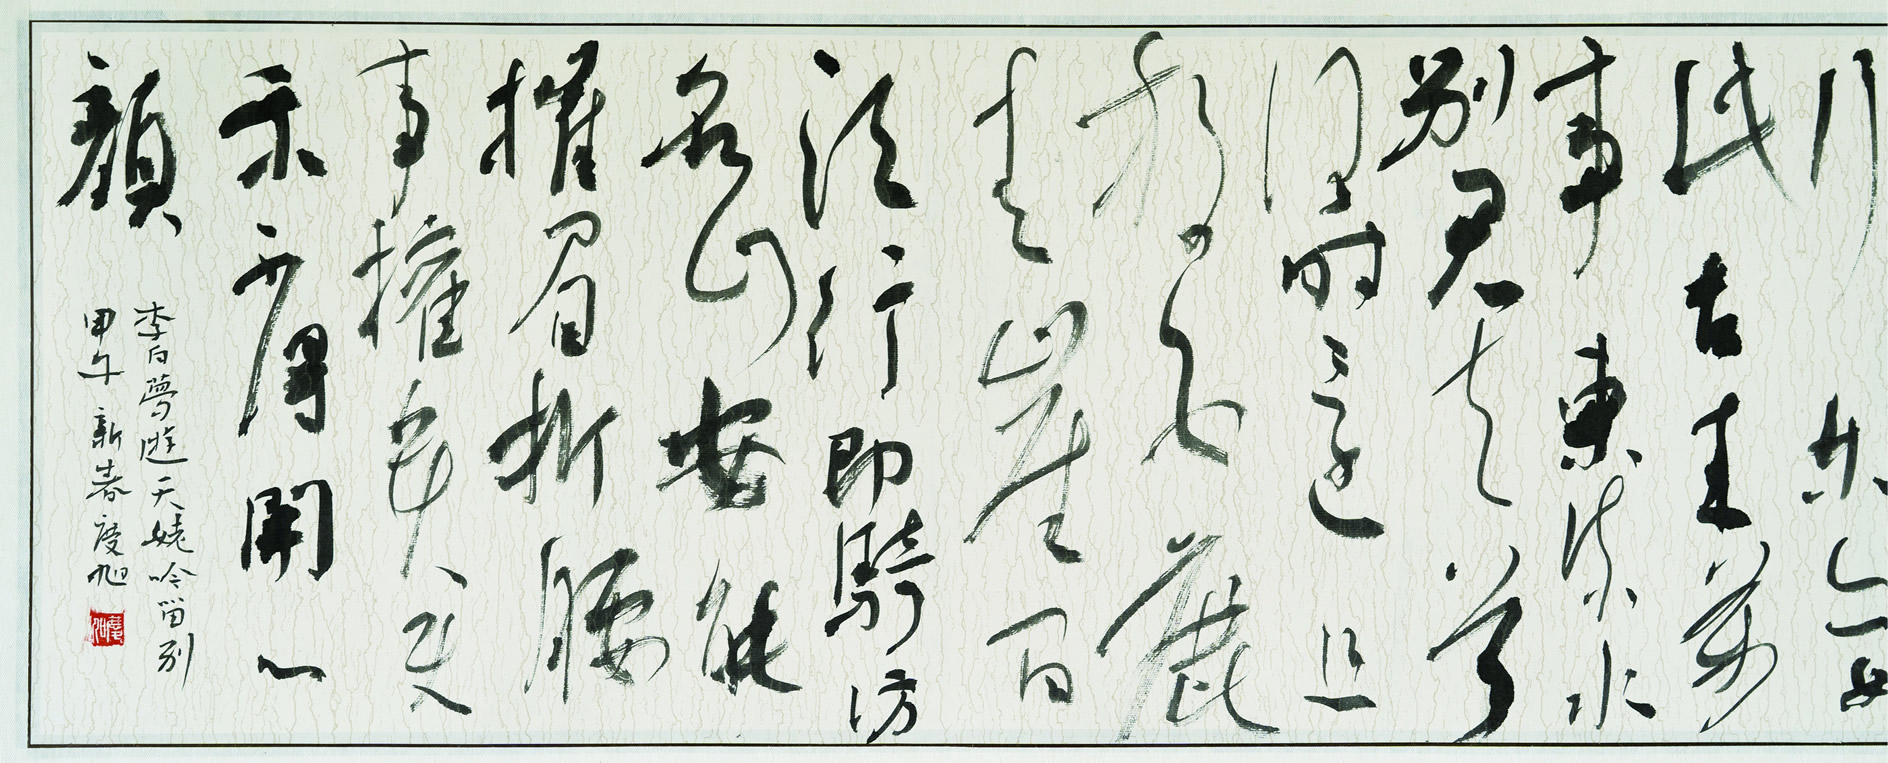 行樂亦如
此古来萬
事東流水
别君去兮
何时還且
放白鹿
青崖間
須行即騎訪
名山安能
摧眉折腰
事權貴使
我不得開心
顏
李白夢遊天姥吟留别
甲午新春慶旭